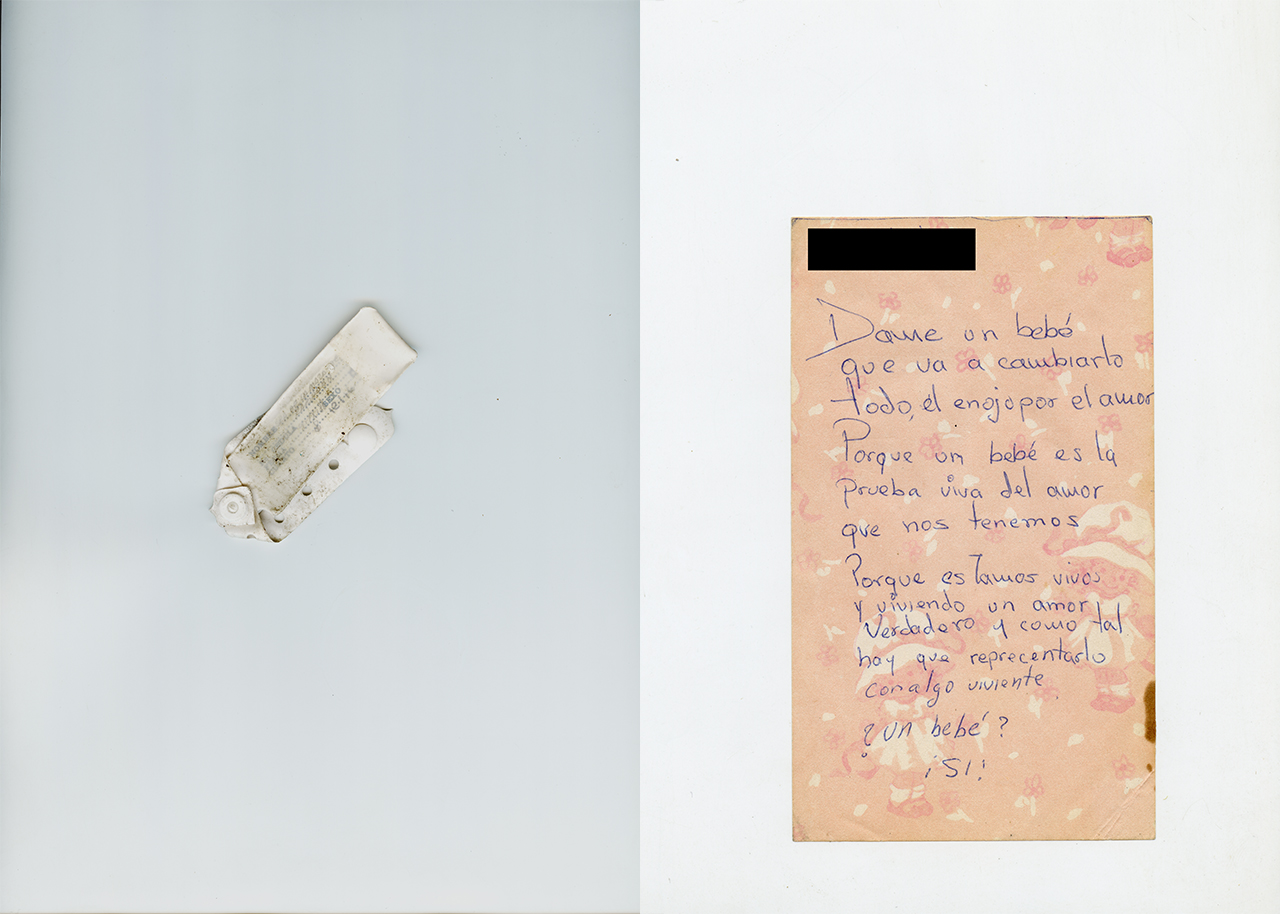 Dame un bebé
que va a cambiarlo
todo, él enojo por el amor
Porque un bebé es la
prueba viva del amor
que nos tenemos
Porque estamos vivos
y viviendo un amor
Verdadero y como tal
hay que reprecentarlo
con algo viviente
¿Un bebé?
¡SI!